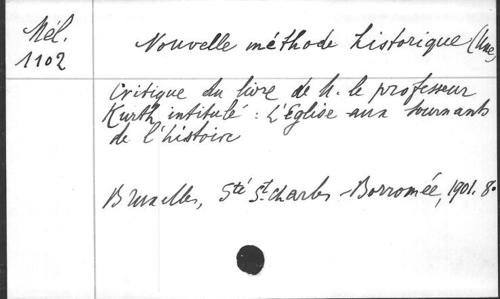 Mél.
1102
Nouvelle méthode historique (Une)
Critique du livre de M. le professeur
Kurth intitulé : L'Eglise aux tournants
de l'histoire
Bruxelles, Sté St. Charles-Borromée, 1901. 8o